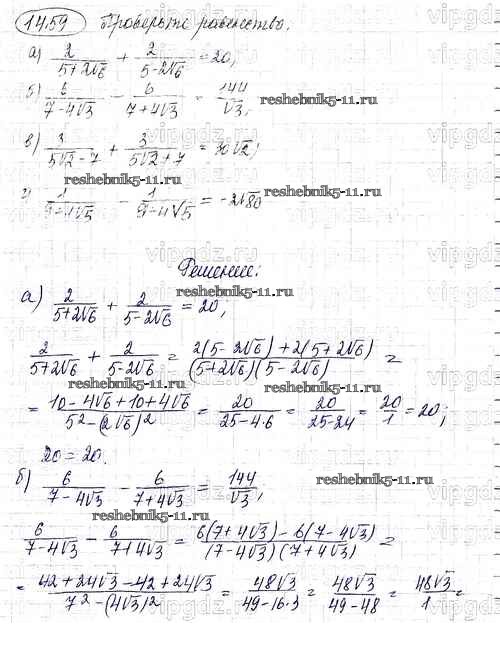 14.59 Проверьте равенство.
а) 2/(5+2√6) + 2/(5-2√6) = 20,
б) 6/(7-4√3) - 6/(7+4√3) = 144/√3,
reshebnik5-11.ru
в) 3/(5√2-7) + 3/(5√2+7) = 30√2,
reshebnik5-11.ru
г) 1/(9+4√5) - 1/(9-4√5) = -2√80
Решение.
reshebnik5-11.ru
а) 2/(5+2√6) + 2/(5-2√6) = 20,
2/(5+2√6) + 2/(5-2√6) = (2(5-2√6)+2(5+2√6))/((5+2√6)(5-2√6)) =
reshebnik5-11.ru
= (10-4√6+10+4√6)/(5²-(2√6)²) = 20/(25-4·6) = 20/(25-24) = 20/1 = 20;
20 = 20.
б) 6/(7-4√3) - 6/(7+4√3) = 144/√3,
reshebnik5-11.ru
reshebnik5-11.ru
6/(7-4√3) - 6/(7+4√3) = (6(7+4√3)-6(7-4√3))/((7-4√3)(7+4√3)) =
= (42+24√3-42+24√3)/(7²-(4√3)²) = 48√3/(49-16·3) = 48√3/(49-48) = 48√3/1 =
vipgdz.ru